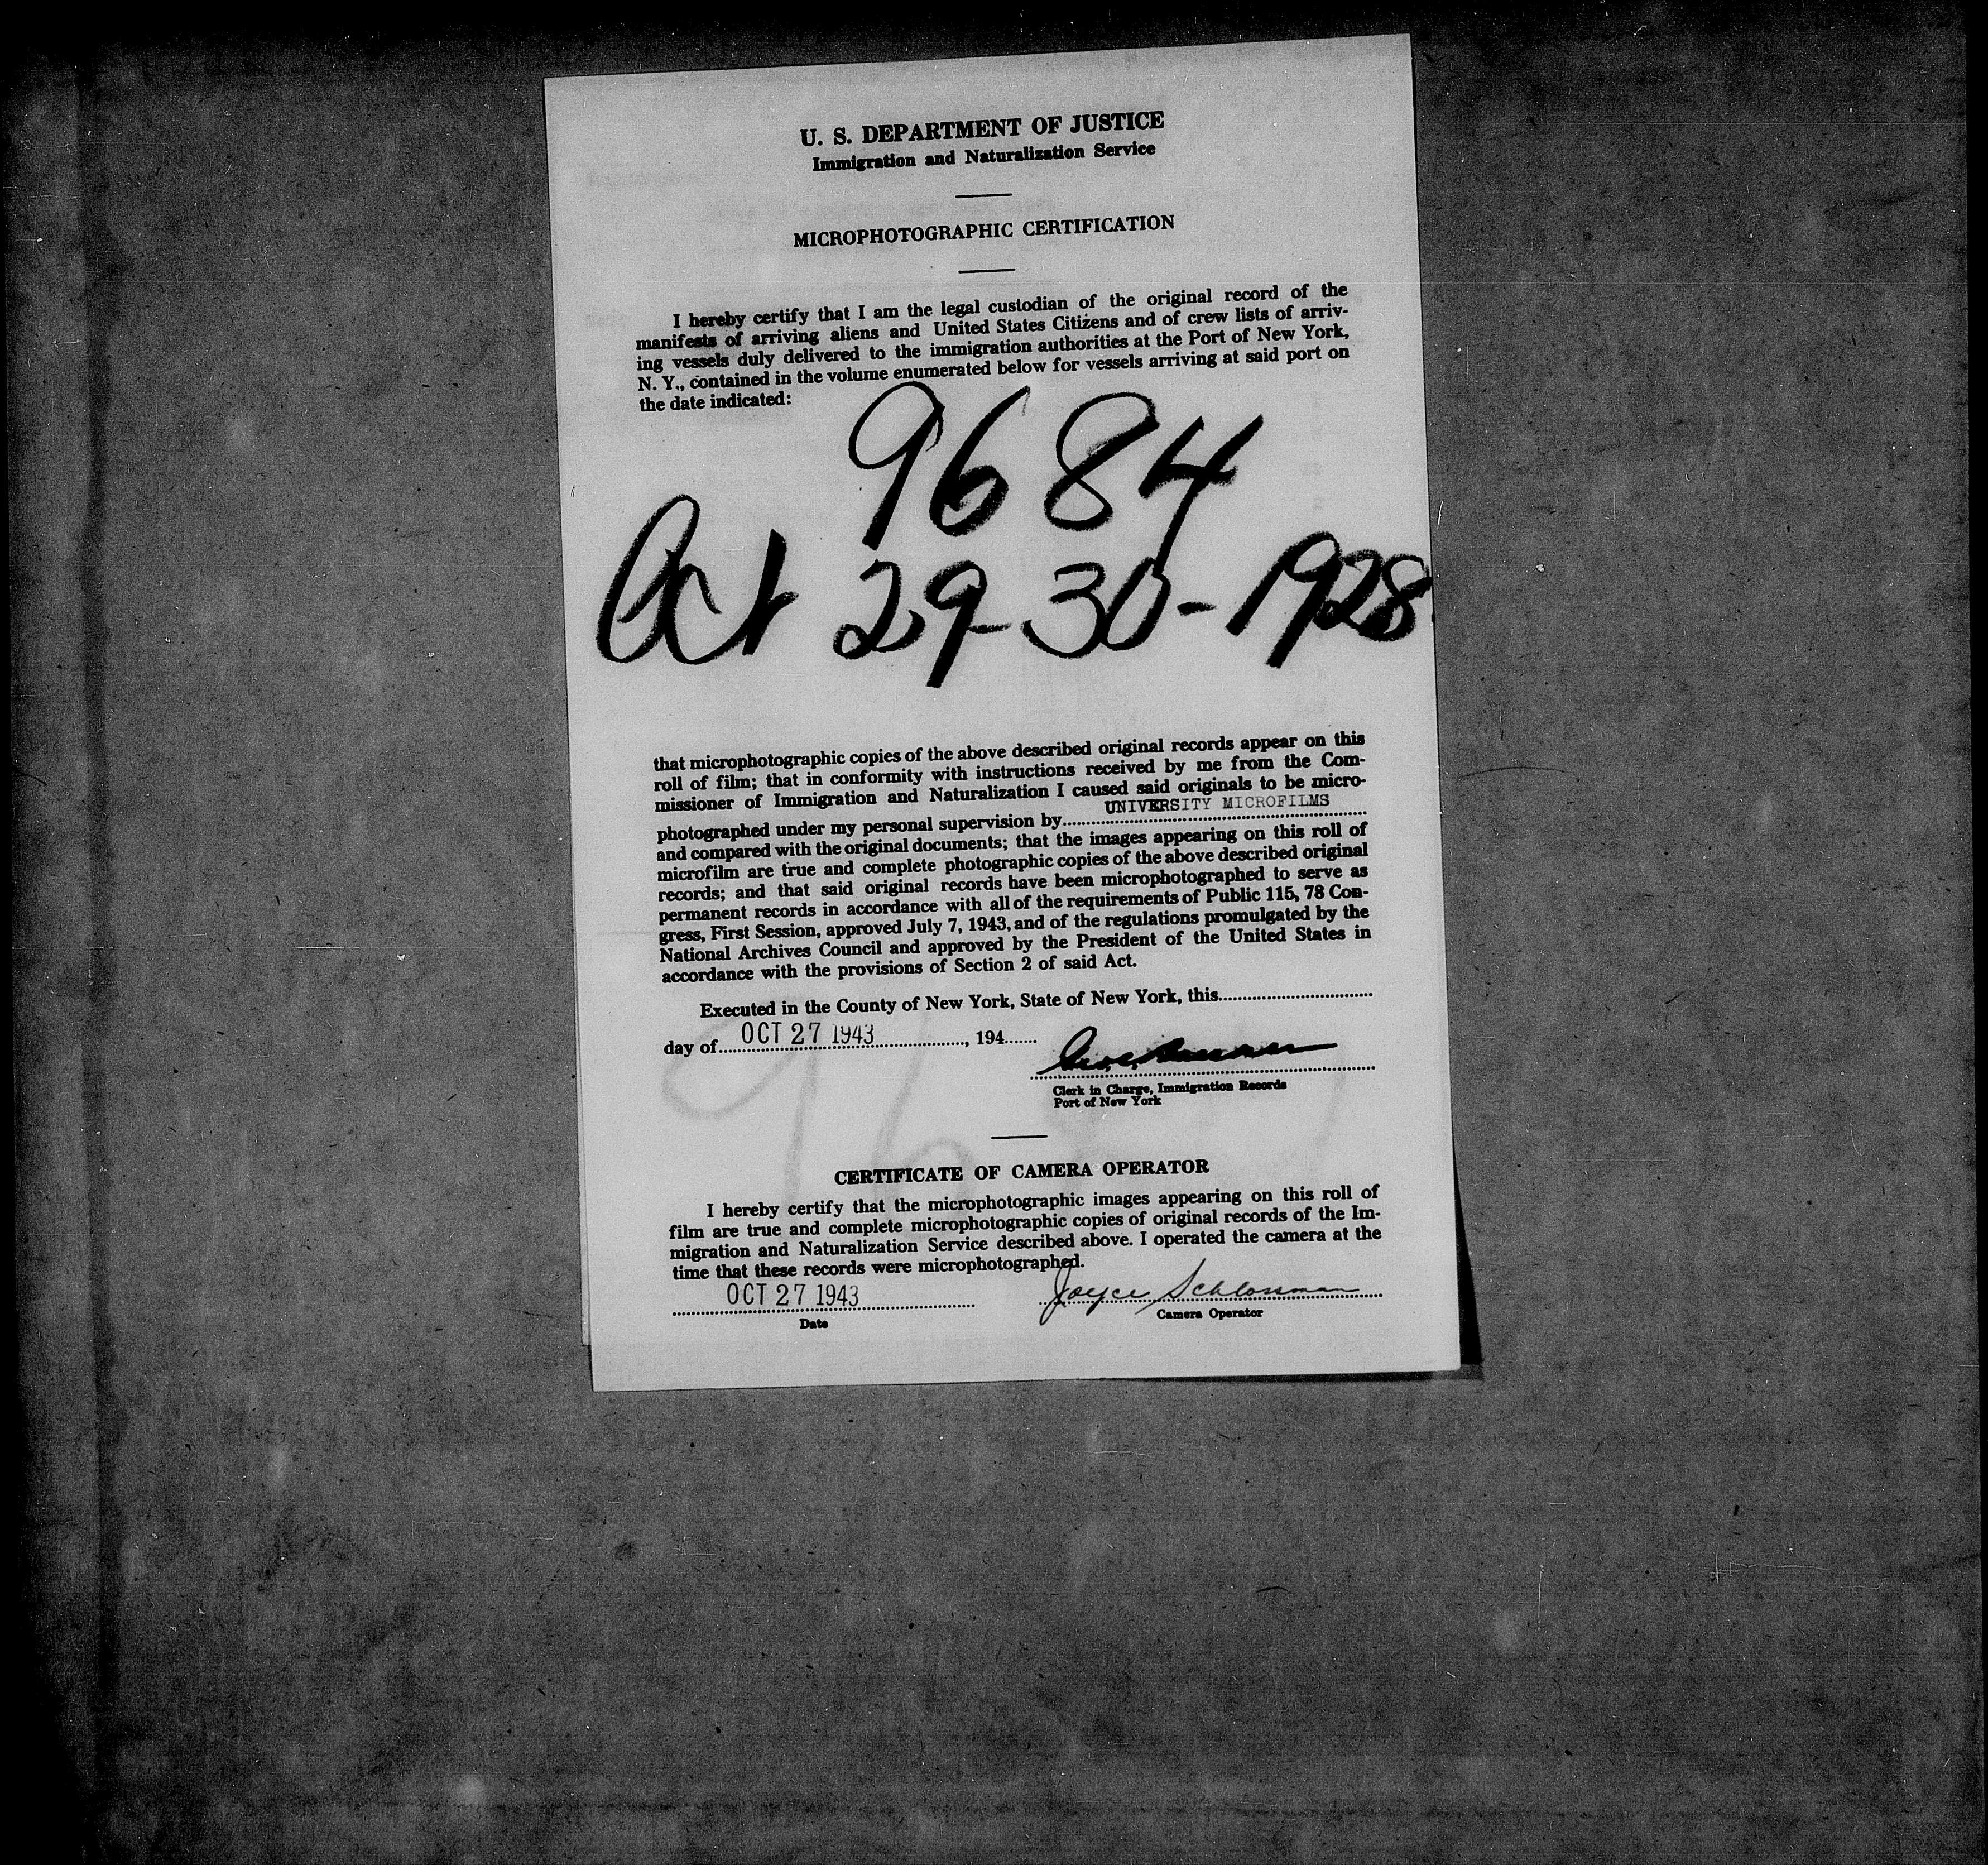 U. S. DEPARTMENT OF JUSTICE
Immigration and Naturalization Service
MICROPHOTOGRAPHIC CERTIFICATION
I hereby certify that I am the legal custodian of the original record of the
manifests of arriving aliens and United States Citizens and of crew lists of arriv-
ing vessels duly delivered to the immigration authorities at the Port of New York,
N. Y., contained in the volume enumerated below for vessels arriving at said port on
the date indicated:
9684
Oct 29-30-1928
that microphotographic copies of the above described original records appear on this
roll of film; that in conformity with instructions received by me from the Com-
missioner of Immigration and Naturalization I caused said originals to be micro-
UNIVERSITY MICROFILMS
photographed under my personal supervision by
and compared with the original documents; that the images appearing on this roll of
microfilm are true and complete photographic copies of the above described original
records; and that said original records have been microphotographed to serve as
permanent records in accordance with all of the requirements of Public 115, 78 Con-
gress, First Session, approved July 7, 1943, and of the regulations promulgated by the
National Archives Council and approved by the President of the United States in
accordance with the provisions of Section 2 of said Act.
Executed in the County of New York, State of New York, this
day of OCT 27 1943, 194
Clerk in Charge, Immigration Records
Port of New York
CERTIFICATE OF CAMERA OPERATOR
I hereby certify that the microphotographic images appearing on this roll of
film are true and complete microphotographic copies of original records of the Im-
migration and Naturalization Service described above. I operated the camera at the
time that these records were microphotographed.
OCT 27 1943 Joyce Schlossman
Date Camera Operator